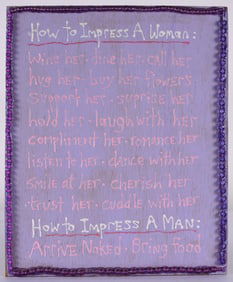 How to Impress A Woman:
Wine her · dine her · call her
hug her · buy her flowers
Support her · suprise her
hold her · laugh with her
compliment her · romance her
listen to her · dance with her
smile at her · cherish her
· trust her · cuddle with her
How to Impress A Man:
Arrive Naked · Bring Food